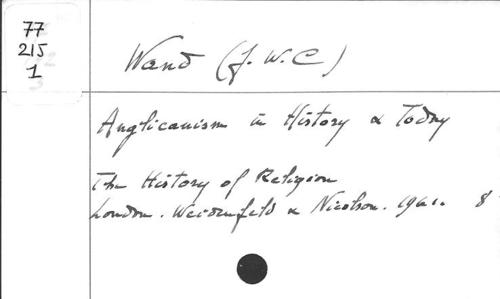 77
215
1
Wand (J. W. C)
Anglicanism in History & Today
The History of Religion
London. Weidenfeld & Nicolson. 1961. 8